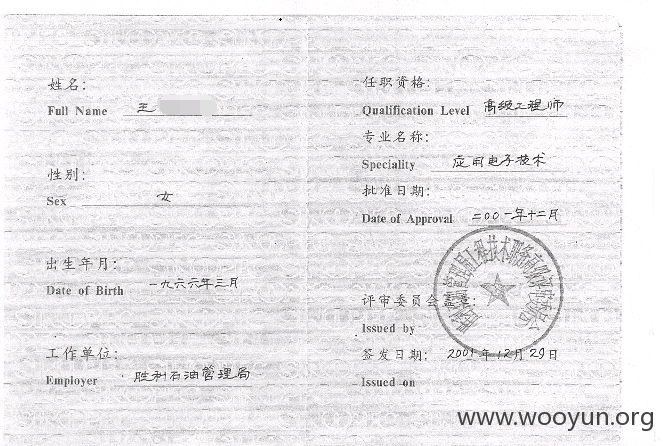 姓名:
Full Name 王
性别:
Sex 女
出生年月:
Date of Birth 一九六六年三月
工作单位:
Employer 胜利石油管理局
任职资格:
Qualification Level 高级工程师
专业名称:
Speciality 应用电子技术
批准日期:
Date of Approval 二00一年十二月
评审委员会盖章:
Issued by
签发日期: 2001年12月29日
Issued on
www.wooyun.org